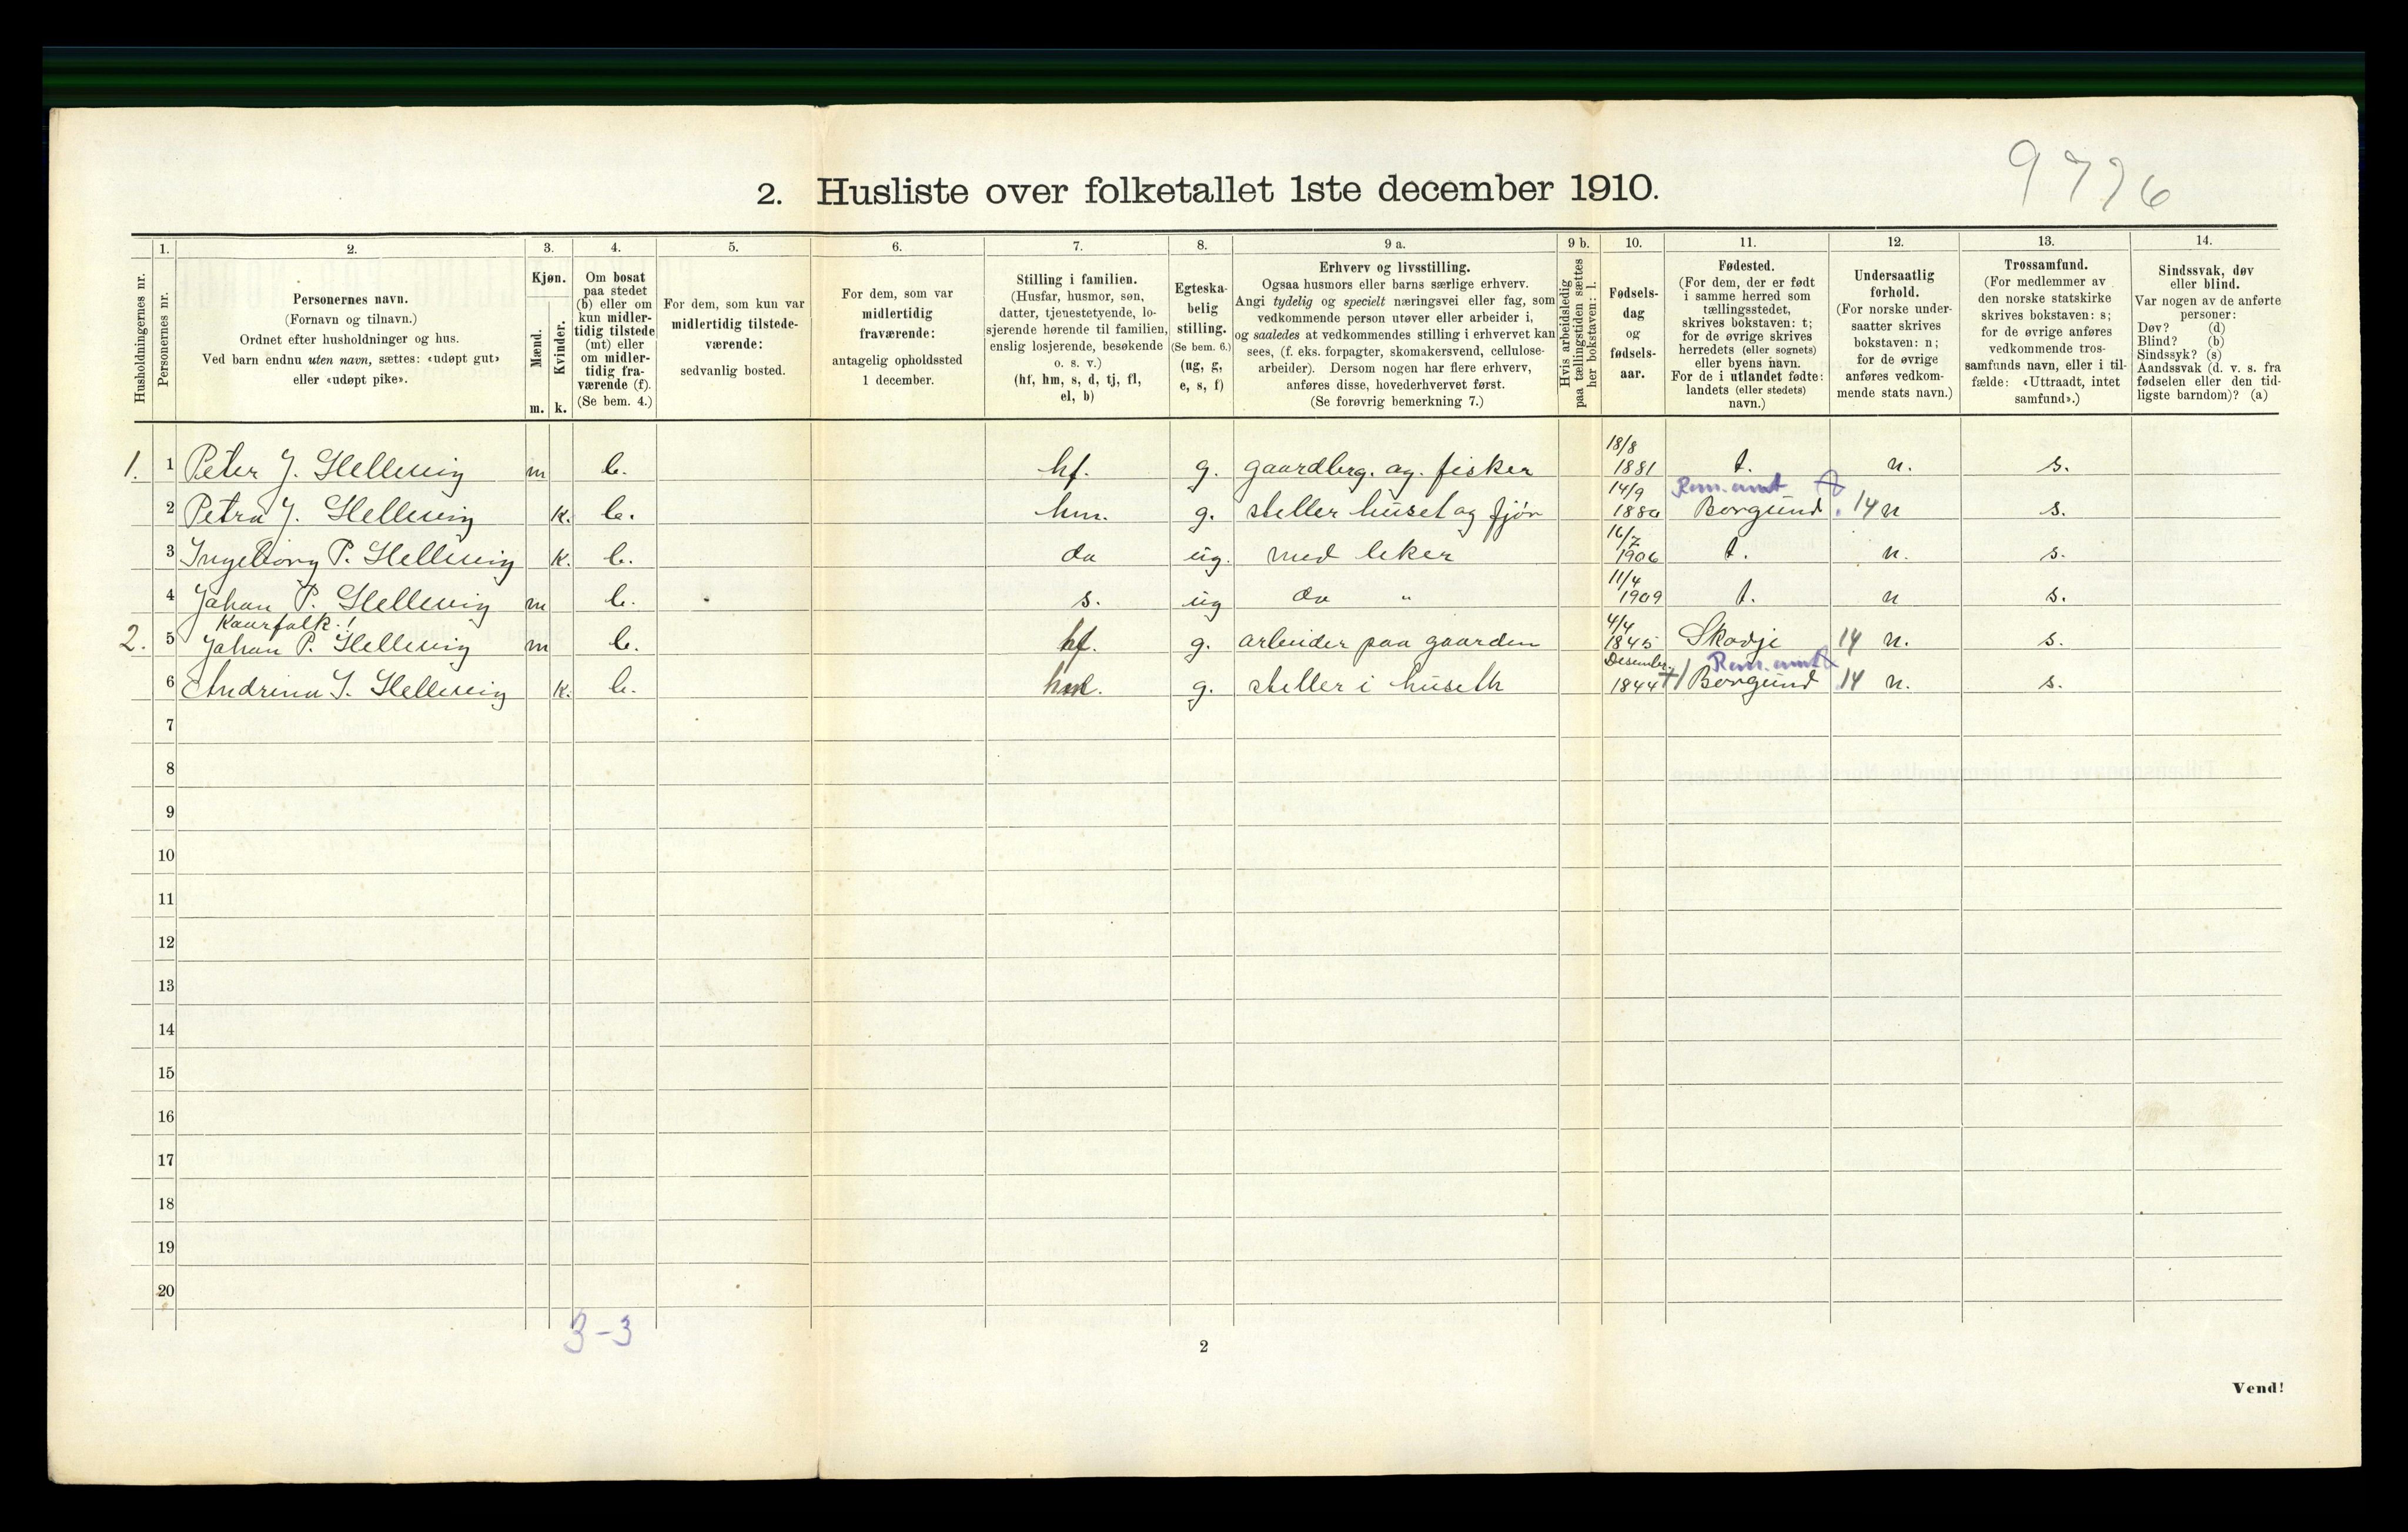 9776
2. Husliste over folketallet 1ste december 1910.
Husholdningernes nr.
1.
Personernes nr.
2.
Personernes navn.
(Fornavn og tilnavn.)
Ordnet efter husholdninger og hus.
Ved barn endnu uten navn, sættes: «udøpt gut»
eller «udøpt pike».
3.
Kjøn.
Mænd.
Kvinder.
m. k.
4.
Om bosat
paa stedet
(b) eller om
kun midler-
tidig tilstede
(mt) eller
om midler-
tidig fra-
værende (f).
(Se bem. 4.)
5.
For dem, som kun var
midlertidig tilstede-
værende:
sedvanlig bosted.
6.
For dem, som var
midlertidig
fraværende:
antagelig opholdssted
1 december.
7.
Stilling i familien.
(Husfar, husmor, søn,
datter, tjenestetyende, lo-
sjerende hørende til familien,
enslig losjerende, besøkende
o. s. v.)
(hf, hm, s, d, tj, fl,
el, b)
8.
Egteska-
belig
stilling.
(Se bem. 6.)
(ug, g,
e, s, f)
9 a.
Erhverv og livsstilling.
Ogsaa husmors eller barns særlige erhverv.
Angi tydelig og specielt næringsvei eller fag, som
vedkommende person utøver eller arbeider i,
og saaledes at vedkommendes stilling i erhvervet kan
sees, (f. eks. forpagter, skomakersvend, cellulose-
arbeider). Dersom nogen har flere erhverv,
anføres disse, hovederhvervet først.
(Se forøvrig bemerkning 7.)
9 b.
Hvis arbeidsledig
paa tællingstiden sættes
her bokstaven: l.
10.
Fødsels-
dag
og
fødsels-
aar.
11.
Fødested.
(For dem, der er født
i samme herred som
tællingsstedet,
skrives bokstaven: t;
for de øvrige skrives
herredets (eller sognets)
eller byens navn.
For de i utlandet fødte:
landets (eller stedets)
navn.)
12.
Undersaatlig
forhold.
(For norske under-
saatter skrives
bokstaven: n;
for de øvrige
anføres vedkom-
mende stats navn.)
13.
Trossamfund.
(For medlemmer av
den norske statskirke
skrives bokstaven: s;
for de øvrige anføres
vedkommende tros-
samfunds navn, eller i til-
fælde: «Uttraadt, intet
samfund».)
14.
Sindssvak, døv
eller blind.
Var nogen av de anførte
personer:
Døv? (d)
Blind? (b)
Sindssyk? (s)
Aandssvak (d. v. s. fra
fødselen eller den tid-
ligste barndom)? (a)
18/8
1. 1 Peter J. Hellevig m b. hf. g. gaardbrg. og. fisker 1881 t. n. s.
14/9 Rom. amt
2 Petra J. Hellevig k. b. hm. g. steller huset og fjør 1880 Borgund 14 n s.
16/7
3 Ingeborg P. Hellevig k. b. da ug. med leker 1906 t. n. s.
11/4
4 Johan P. Hellevig m b. s. ug do " 1909 t. n s.
Kaarfolk.! 4/4
2. 5 Johan P. Hellevig m b. hf. g. arbeider paa gaarden 1845 Skodje 14 n. s.
Desember. Rom. amt
6 Andrina I. Hellevig k. b. hm. g. steller i huseth 1844 Borgund 14 n. s.
7
8
9
10
11
12
13
14
15
16
17
18
19
20
3-3
2
Vend!